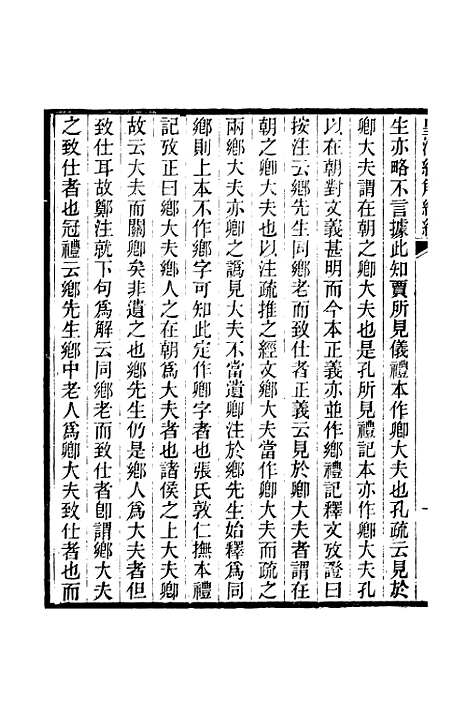 生亦略不言據此知賈所見儀禮本作卿大夫也孔疏云見於
卿大夫謂在朝之卿大夫也是孔所見禮記本亦作卿大夫孔
以在朝對文義甚明而今本正義亦並作鄉禮記釋文攷證曰
按注云鄉先生同鄉老而致仕者正義云見於卿大夫者謂在
朝之卿大夫也以注疏推之經文鄉大夫當作卿大夫而疏之
兩鄉大夫亦卿大夫之譌見大夫不當遺卿注於鄉先生始釋爲同
鄉則上本不作鄉字可知此定作卿字者也張氏敦仁撫本禮
記攷正曰鄉大夫鄉人之在朝爲大夫者也諸侯之上大夫卿
故云大夫而關卿矣非遺之也鄉先生仍是鄉人爲大夫者但
致仕耳故鄭注就下句爲解云同鄉老而致仕者卽謂鄉大夫
之致仕者也冠禮云鄉先生鄉中老人爲卿大夫致仕者也而